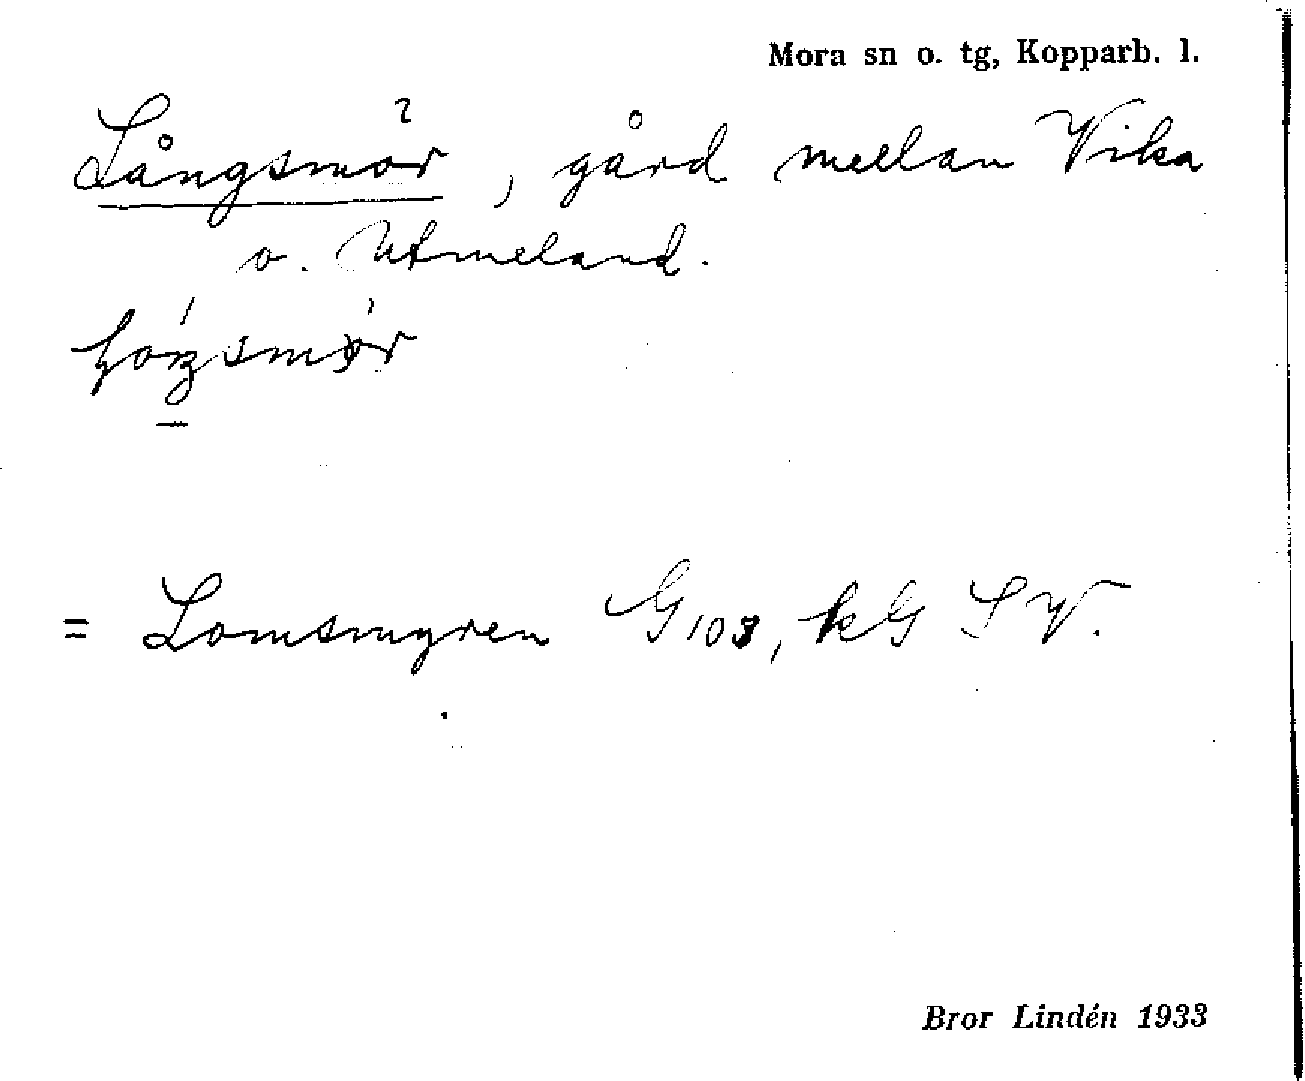 Mora sn o. tg, Kopparb. l.
Långsmor, gård mellan Vika
o. Utmeland.
= Lomsmyren G103, kG SV.
Bror Lindén 1933